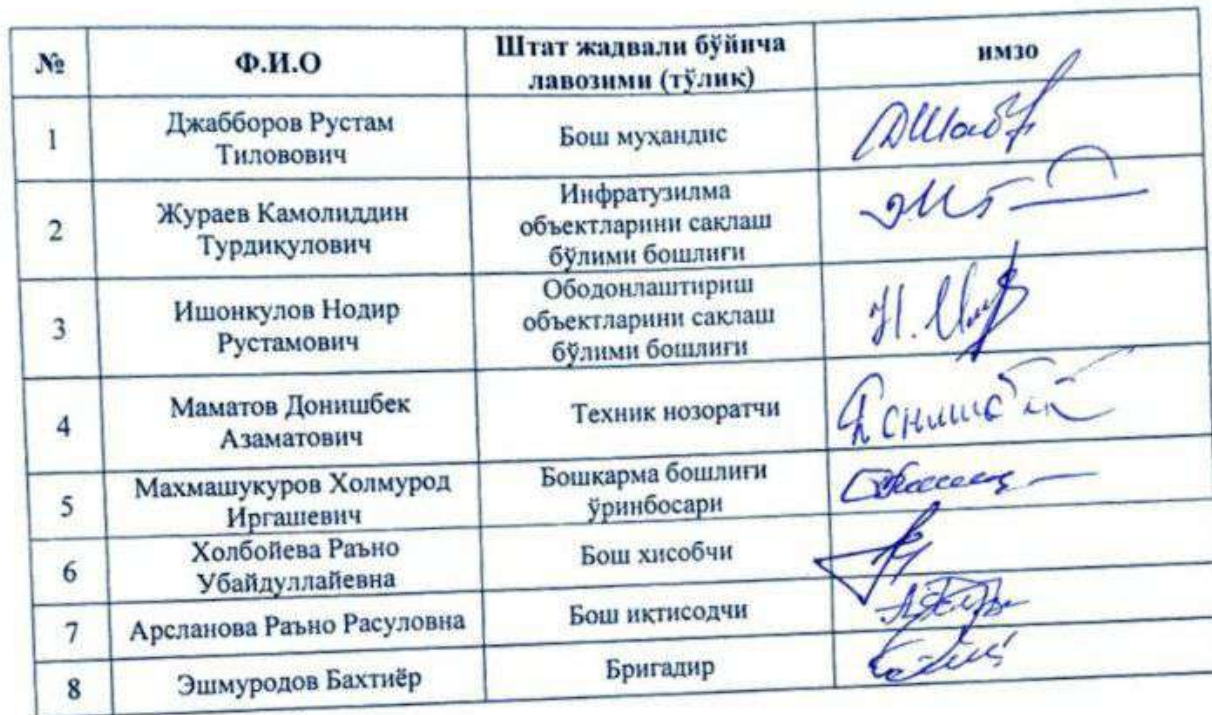 № Ф.И.О Штат жадвали бўйича лавозими (тўлиқ) имзо
1 Джабборов Рустам Тиловович Бош муҳандис
2 Жураев Камолиддин Турдиқулович Инфратузилма объектларини сақлаш бўлими бошлиғи
3 Ишонкулов Нодир Рустамович Ободонлаштириш объектларини сақлаш бўлими бошлиғи
4 Маматов Донишбек Азаматович Техник нозоратчи
5 Махмашукуров Холмурод Иргашевич Бошкарма бошлиғи ўринбосари
6 Холбойева Раъно Убайдуллайевна Бош хисобчи
7 Арсланова Раъно Расуловна Бош иқтисодчи
8 Эшмуродов Бахтиёр Бригадир